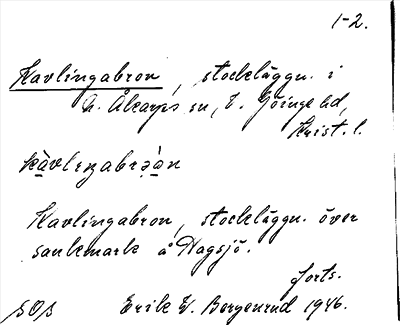 1-2.
Kavlingabron, stockläggn. i
N. Åkarps sn, V. Göinge hd,
Krist. l.
kàvlıŋabrɷ̀an
Kavlingabron, stockläggn. över
sankmark å Hagsjö.
forts.
SOS Erik W. Bergenrud 1946.